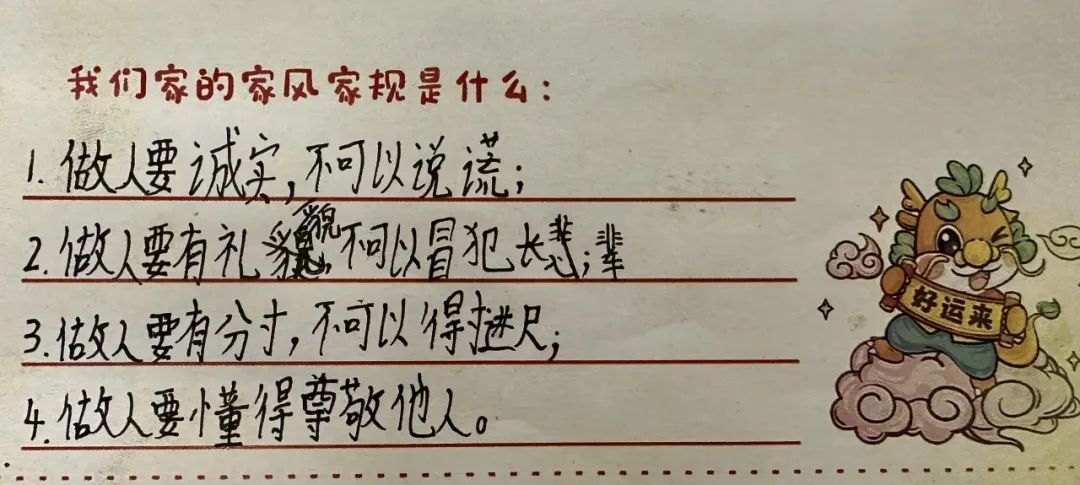 我们家的家风家规是什么：
1.做人要诚实，不可以说谎；
2.做人要有礼貌，不可以冒犯长辈；
3.做人要有分寸，不可以得寸进尺；
4.做人要懂得尊敬他人。
好运来